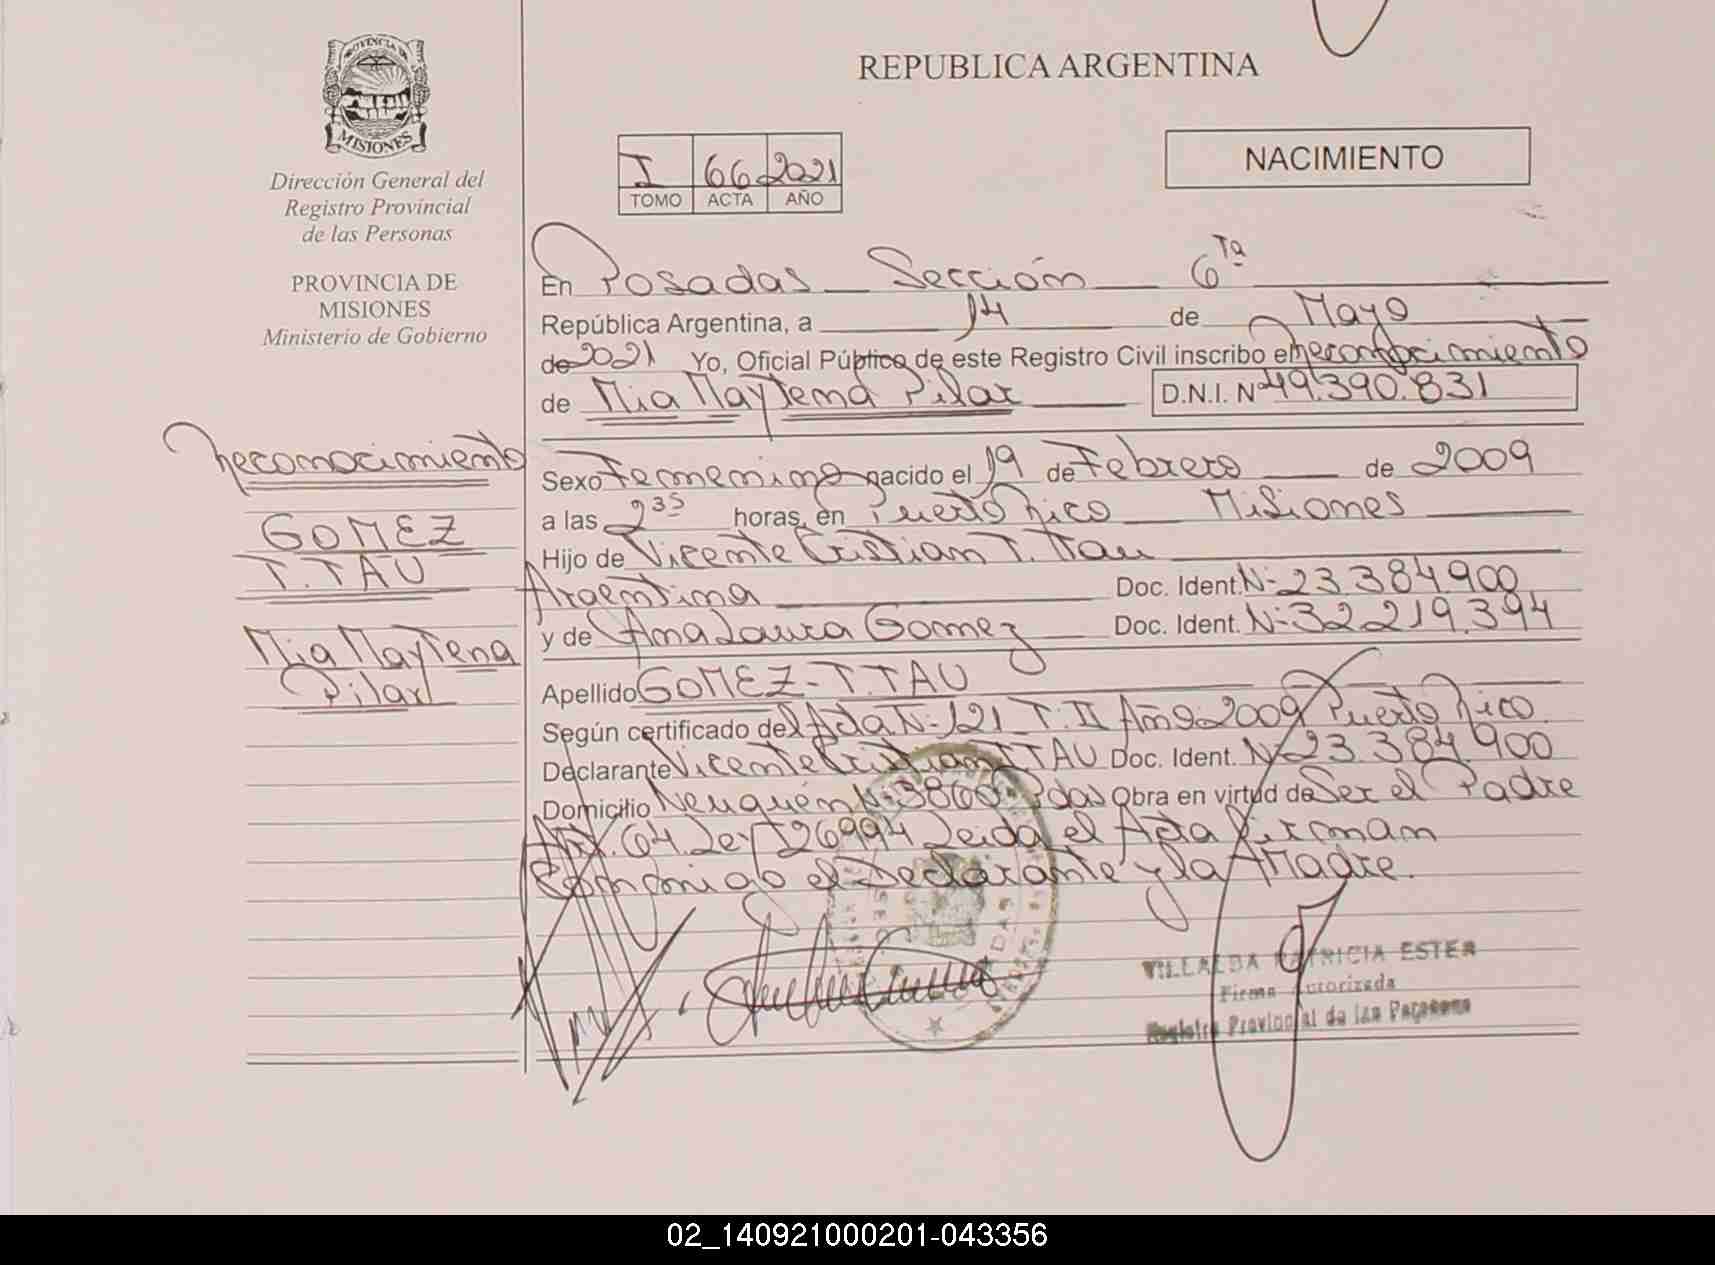 PROVINCIA DE
MISIONES
Dirección General del
Registro Provincial
de las Personas
PROVINCIA DE
MISIONES
Ministerio de Gobierno
Reconocimiento
GOMEZ
T.TAU
Mia Maytena
Pilar
REPUBLICA ARGENTINA
I 66 2021
TOMO ACTA AÑO
NACIMIENTO
En Posadas Sección 6 Ta
República Argentina, a 14 de Mayo
de 2021 Yo, Oficial Público de este Registro Civil inscribo el reconocimiento
de Mia Maytena Pilar D.N.I. Nº 49.390.831
Sexo Femenino nacido el 19 de Febrero de 2009
a las 2 35 horas, en Puerto Rico Misiones
Hijo de Vicente Cristian T.Tau
Argentina Doc. Ident. Nº 23.384.900
y de Ana Laura Gomez Doc. Ident. Nº 32.219.394
Apellido GOMEZ - T.TAU
Según certificado del Acta Nº 121 T. II Año 2009 Puerto Rico.
Declarante Vicente Cristian T.TAU Doc. Ident. Nº 23.384.900
Domicilio Neuquén Nº 3860 Pdas Obra en virtud de Ser el Padre
Art. 64. Ley 26994 Leida el Acta firman
conmigo el Declarante y la Madre.
VILLALBA PATRICIA ESTER
Firma Autorizada
Registro Provincial de las Personas
02_140921000201-043356